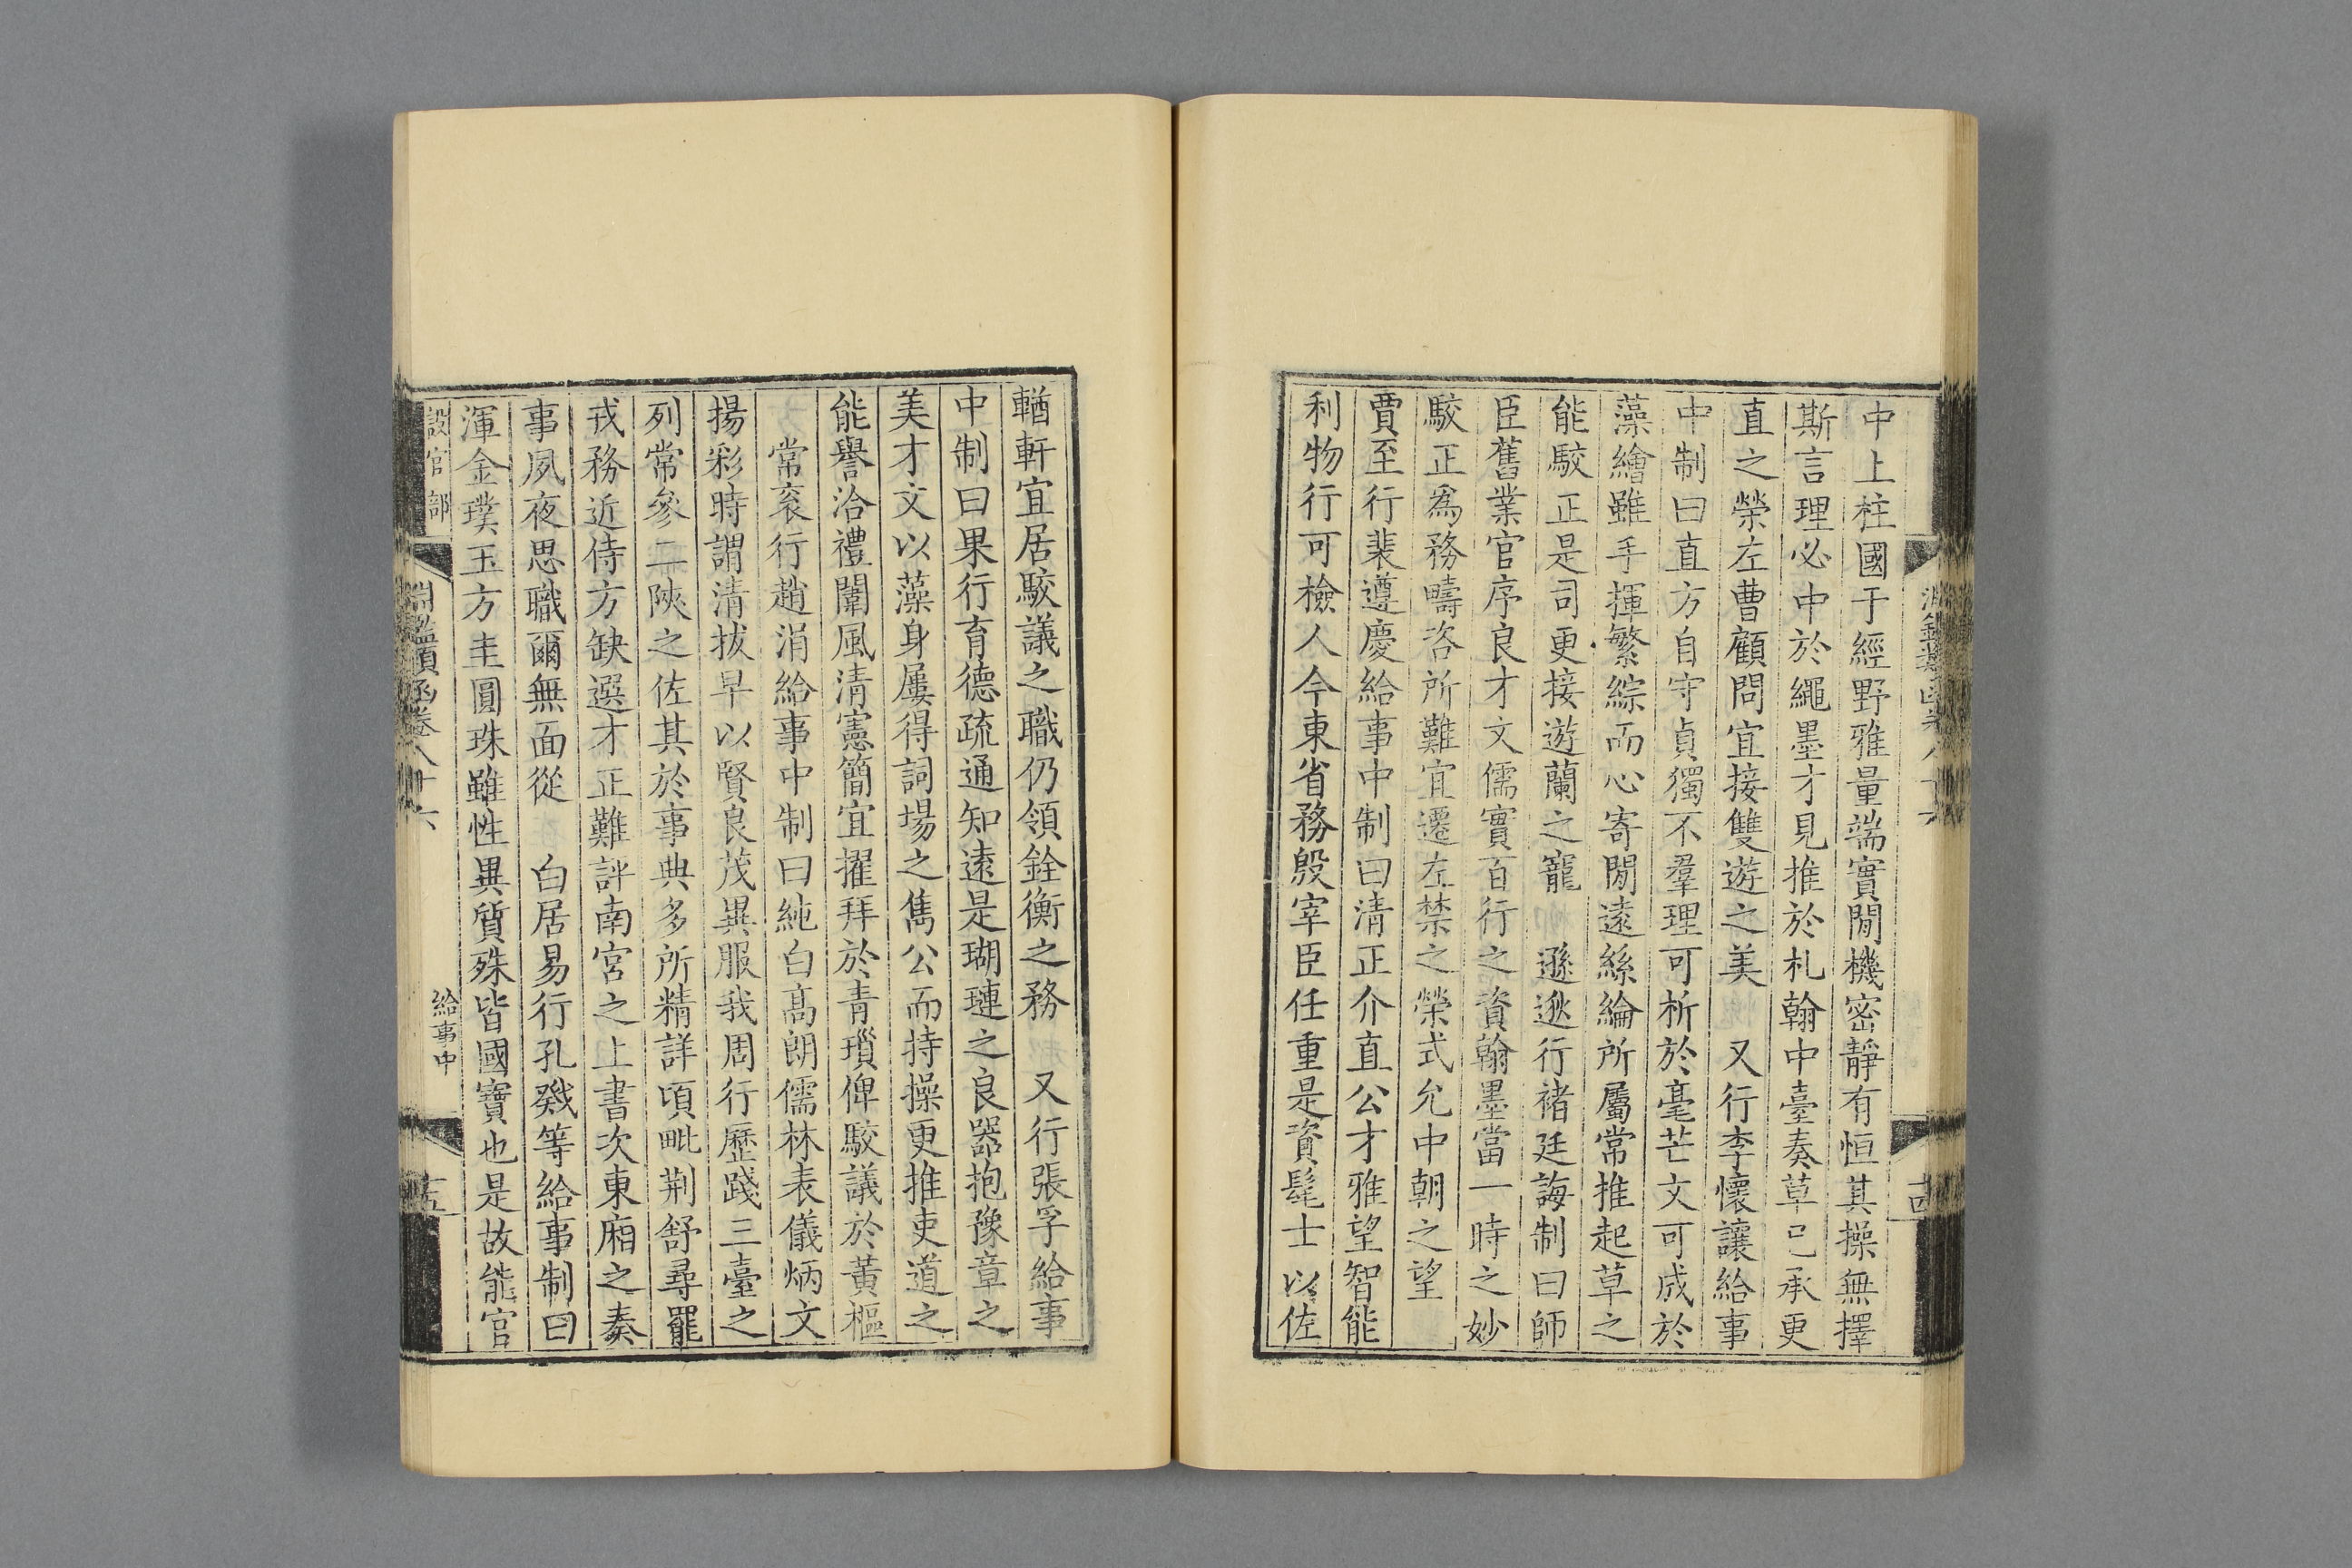 中上柱國于經野雅量端實閒機密靜有恒其操無擇
斯言理必中於繩墨才見推於札翰中臺奏草已承更
直之榮左曹顧問宜接雙遊之美 又行李懷讓給事
中制曰直方自守貞獨不羣理可析於毫芒文可成於
藻繪雖手揮繁綜而心寄閒遠絲綸所屬常推起草之
能駮正是司更接遊蘭之寵 遜逖行褚廷誨制曰師
臣舊業官序良才文儒實百行之資翰墨當一時之妙
駮正爲務疇咨所難宜遷左禁之榮式允中朝之望
賈至行裴遵慶給事中制曰清正介直公才雅望智能
利物行可檢人今東省務殷宰臣任重是資髦士以佐
輶軒宜居駮議之職仍領銓衡之務 又行張孚給事
中制曰果行育德疏通知遠是瑚璉之良器抱豫章之
美才文以藻身屢得詞場之雋公而持操更推吏道之
能譽洽禮闈風清憲簡宜擢拜於青瑣俾駮議於黃樞
常衮行趙涓給事中制曰純白高朗儒林表儀炳文
揚彩時謂清拔早以賢良茂異服我周行歷踐三臺之
列常參二陝之佐其於事典多所精詳頃毗荆舒尋罷
戎務近侍方缺選才正難評南宮之上書次東廂之奏
事夙夜思職爾無面從 白居易行孔戣等給事制曰
渾金璞玉方圭圓珠雖性異質殊皆國寶也是故能官
設官部 淵鑑類函卷八十六 給事中 十五